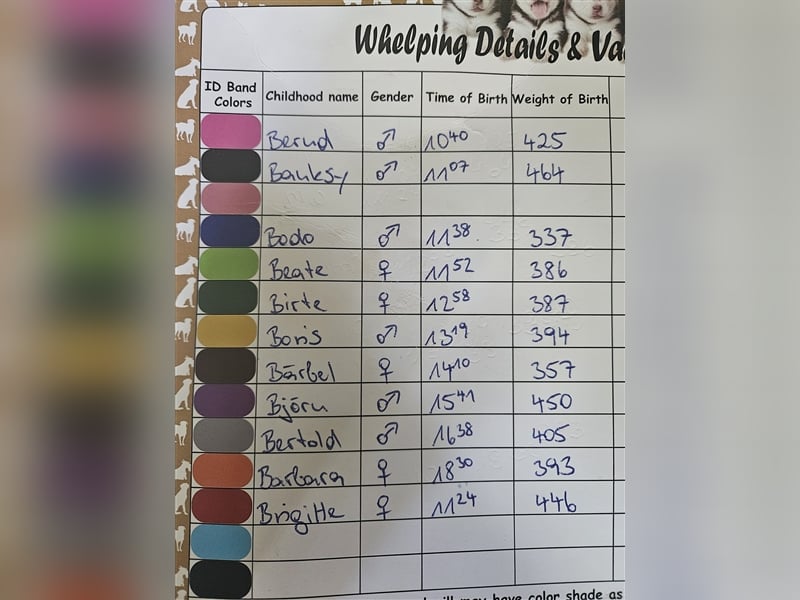 Whelping Details & Va
ID Band Colors Childhood name Gender Time of Birth Weight of Birth
Bernd ♂ 10⁴⁰ 425
Banksy ♂ 11⁰⁷ 464
Bodo ♂ 11³⁸. 337
Beate ♀ 11⁵² 386
Birte ♀ 12⁵⁸ 387
Boris ♂ 13¹⁹ 394
Bärbel ♀ 14¹⁰ 357
Björn ♂ 15⁴¹ 450
Bertold ♂ 16³⁸ 405
Barbara ♀ 18³⁰ 393
Brigitte ♀ 11²⁴ 446
will may have color shade as